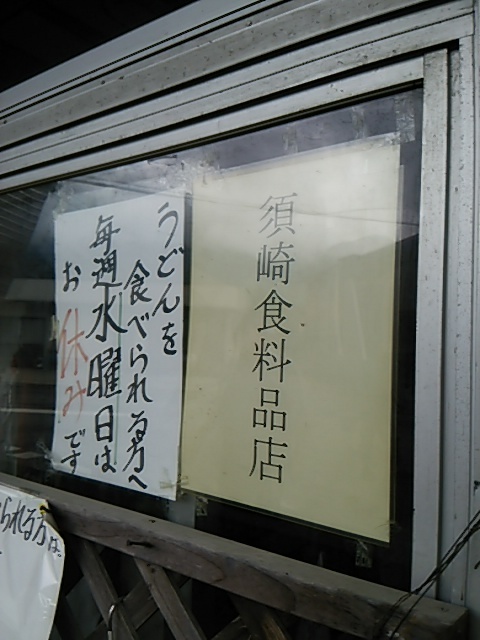 須崎食料品店
うどんを
食べられる方へ
毎週水曜日は
お休みです
られる方は。